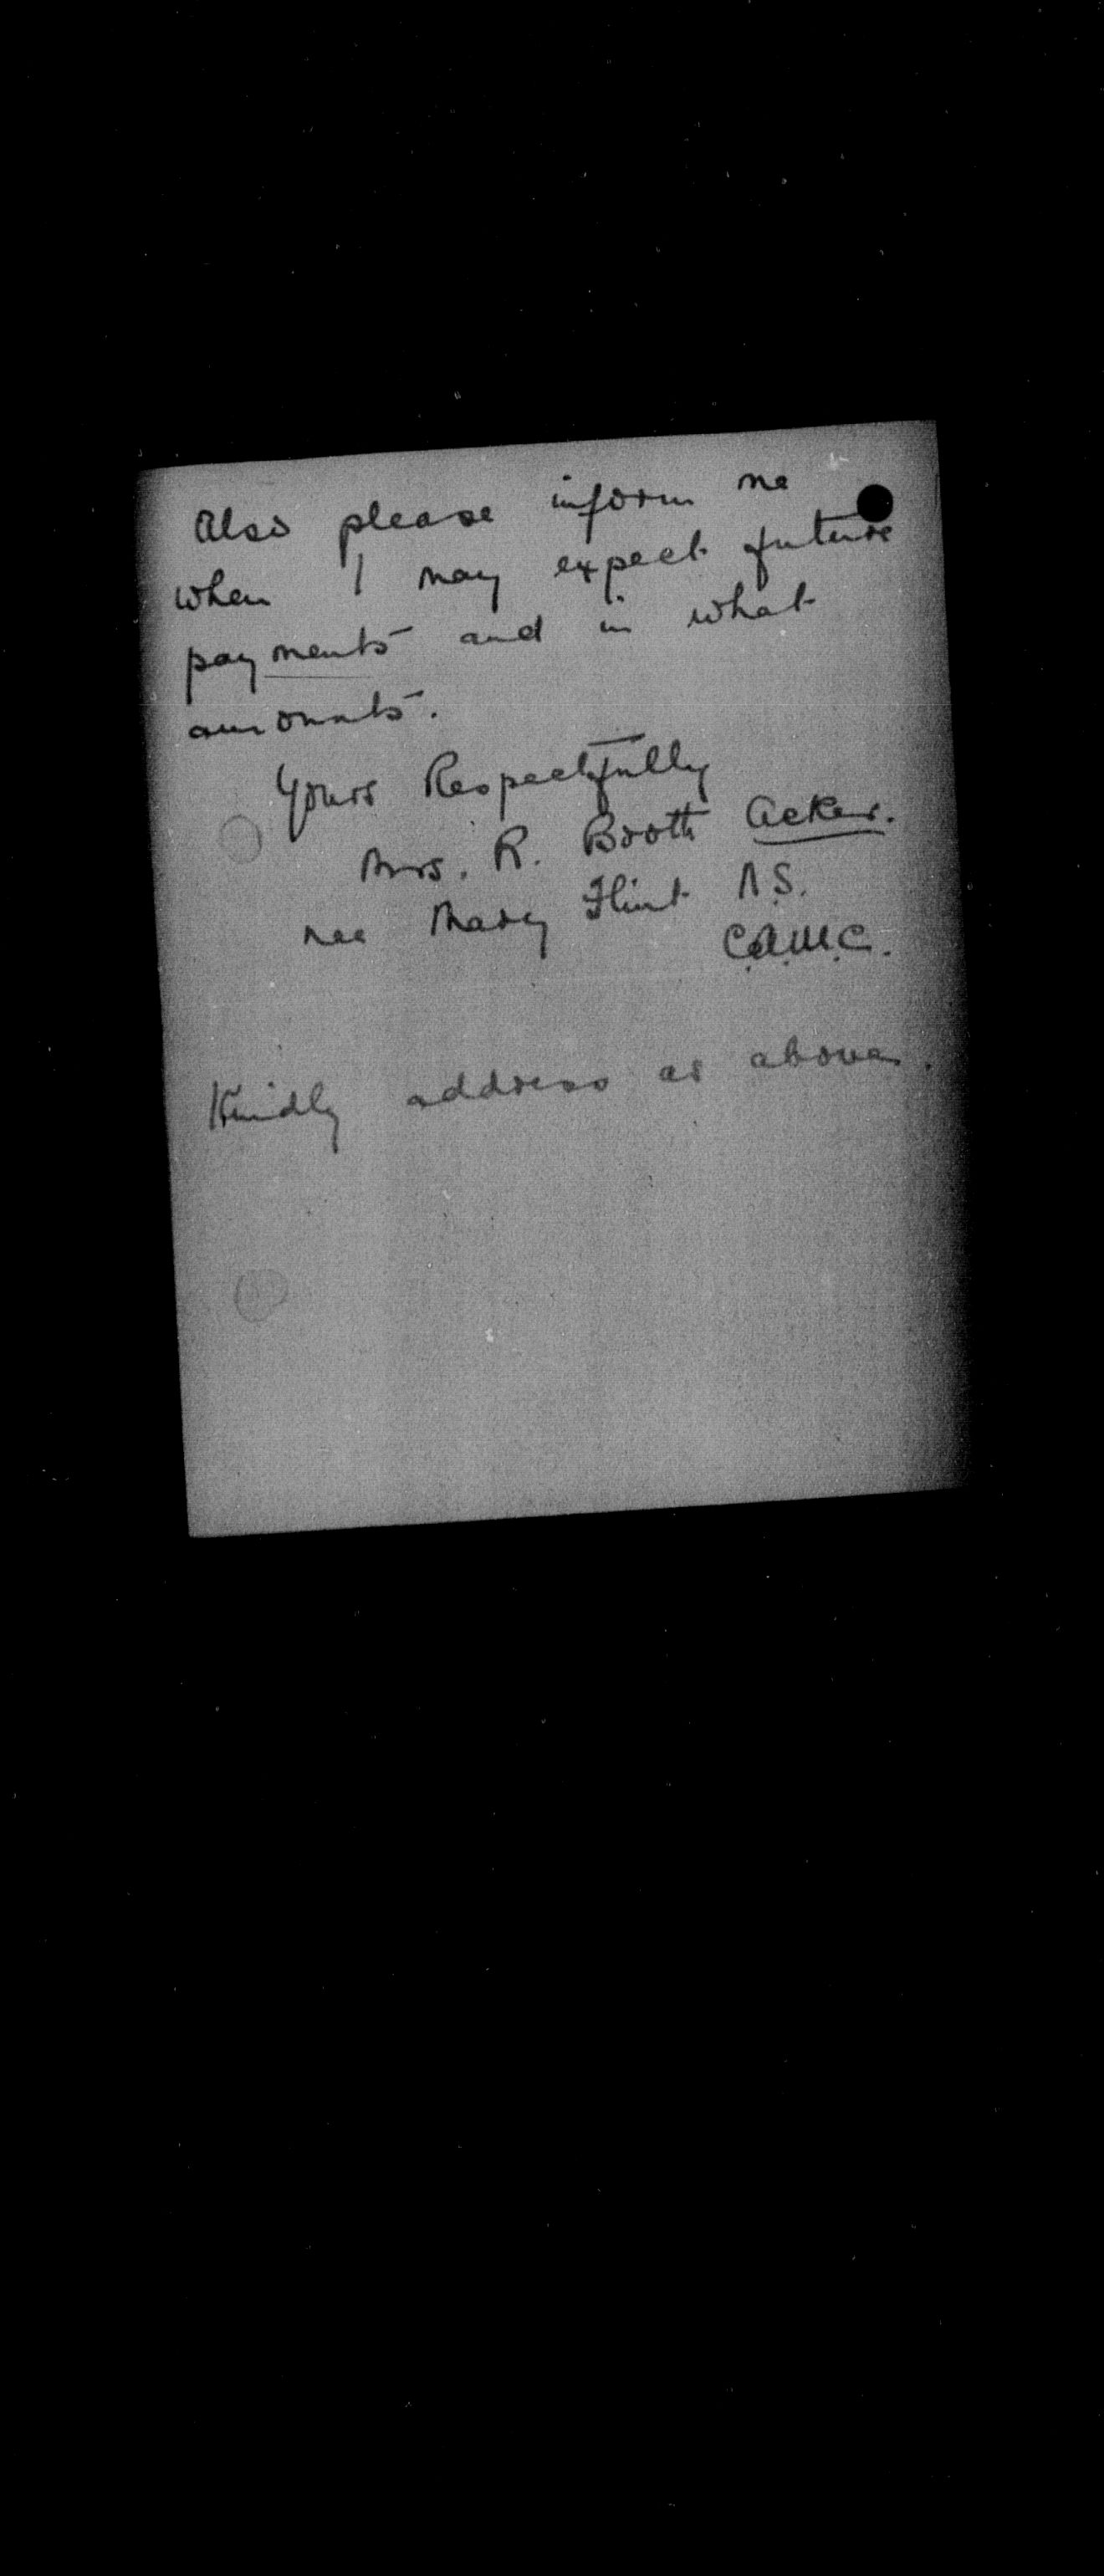 Also please inform me
when I may expect future
payments and in what
amounts.
Yours Respectfully
Mrs. R. Booth Acker.
nee Mary Flint N.S.
C.A.M.C.
Kindly address as above.